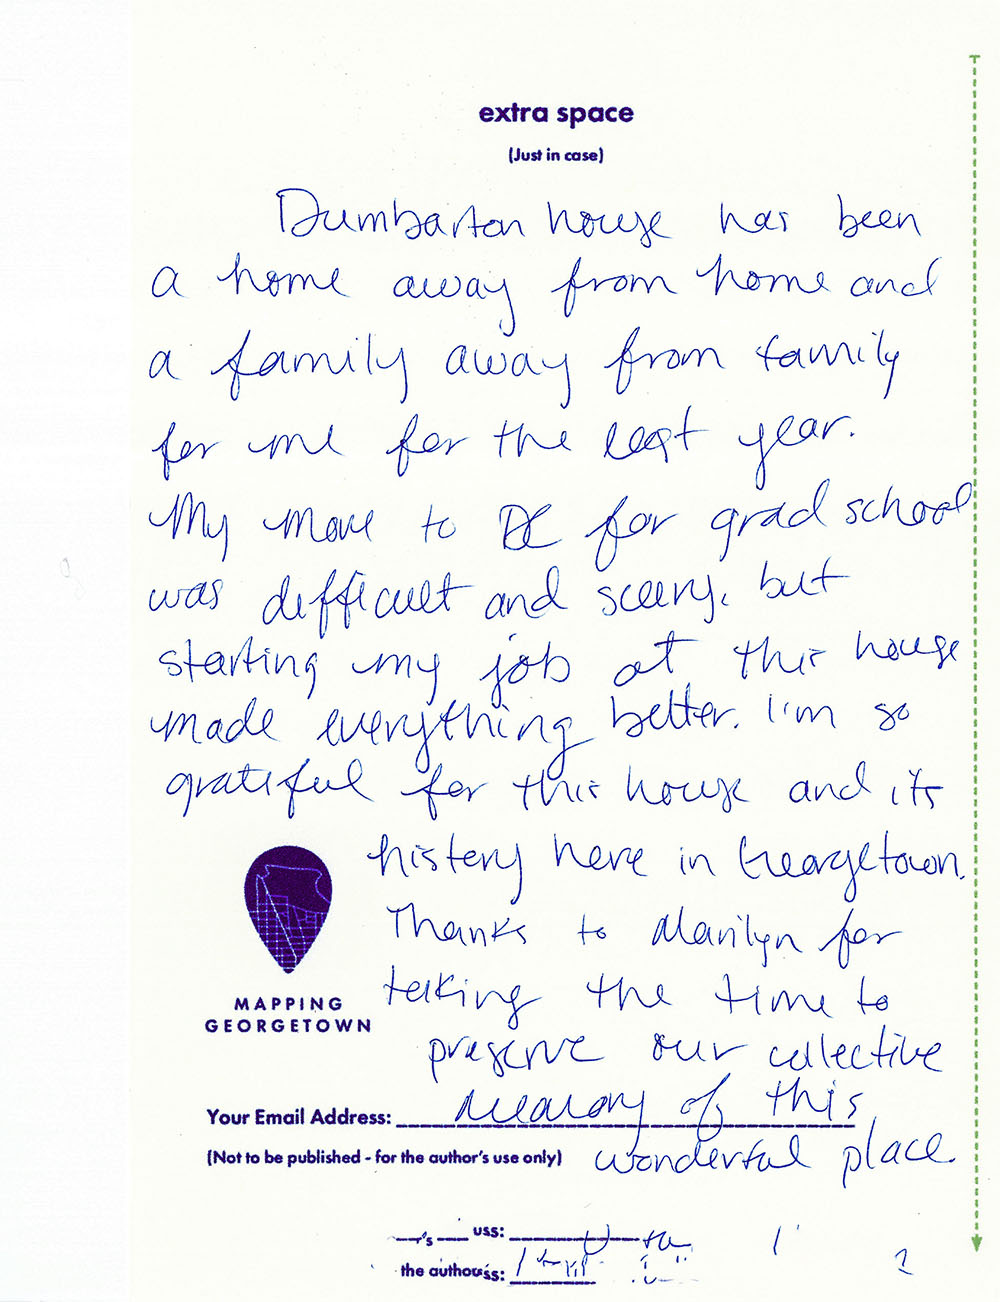 extra space
(Just in case)
Dumbarton house has been
a home away from home and
a family away from family
for me for the last year.
My move to DC for grad school
was difficult and scary, but
starting my job at this house
made everything better. I'm so
grateful for this house and its
history here in Georgetown.
Thanks to Marilyn for
taking the time to
preserve our collective
MAPPING
GEORGETOWN
Your Email Address: memory of this
(Not to be published - for the author's use only) wonderful place.
uss:
the